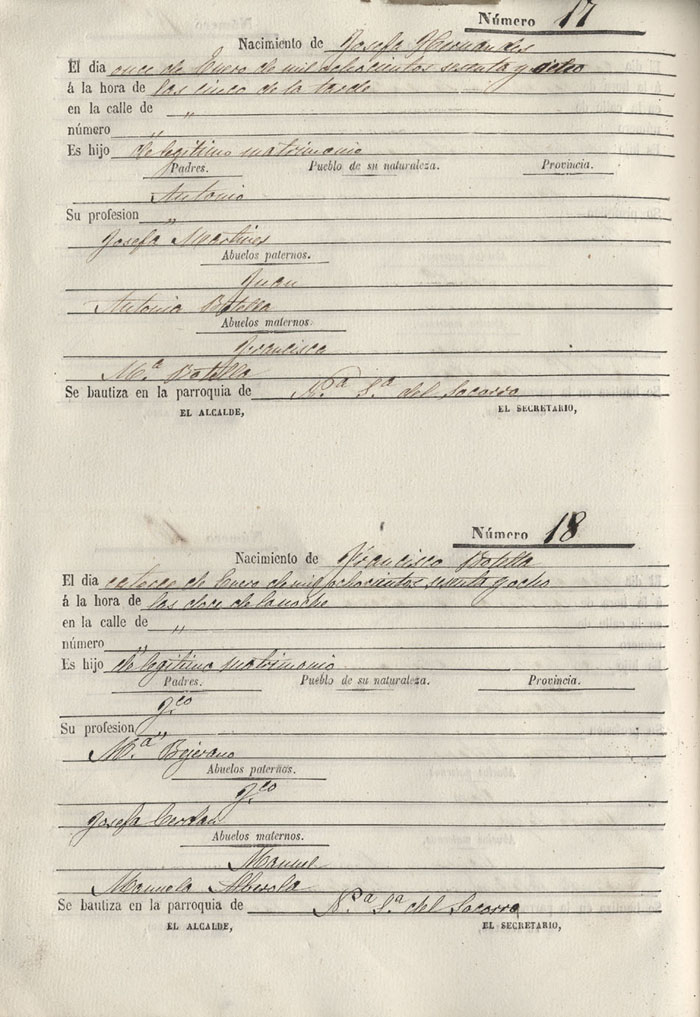 Número 17
Nacimiento de Josefa Hernandes
El dia once de Enero de mil ochocientos sesenta y ocho
á la hora de las cinco de la tarde
en la calle de "
número "
Es hijo de legitimo matrimonio
Padres. Pueblo de su naturaleza. Provincia.
Antonio
Su profesion "
Josefa Martines
Abuelos paternos.
Juan
Antonia Botella
Abuelos maternos.
Francisco
M.ª Botella
Se bautiza en la parroquia de N.ª S.ª del Socorro
EL ALCALDE, EL SECRETARIO,
Número 18
Nacimiento de Francisco Botella
El dia catorce de Enero de mil ochocientos sesenta y ocho
á la hora de las doce de la noche
en la calle de "
número "
Es hijo de legitimo matrimonio
Padres. Pueblo de su naturaleza. Provincia.
Su profesion "
M.ª Bejerano
Abuelos paternos.
Josefa
Abuelos maternos.
Manuel
Manuela Alberola
Se bautiza en la parroquia de N.ª S.ª del Socorro
EL ALCALDE, EL SECRETARIO,